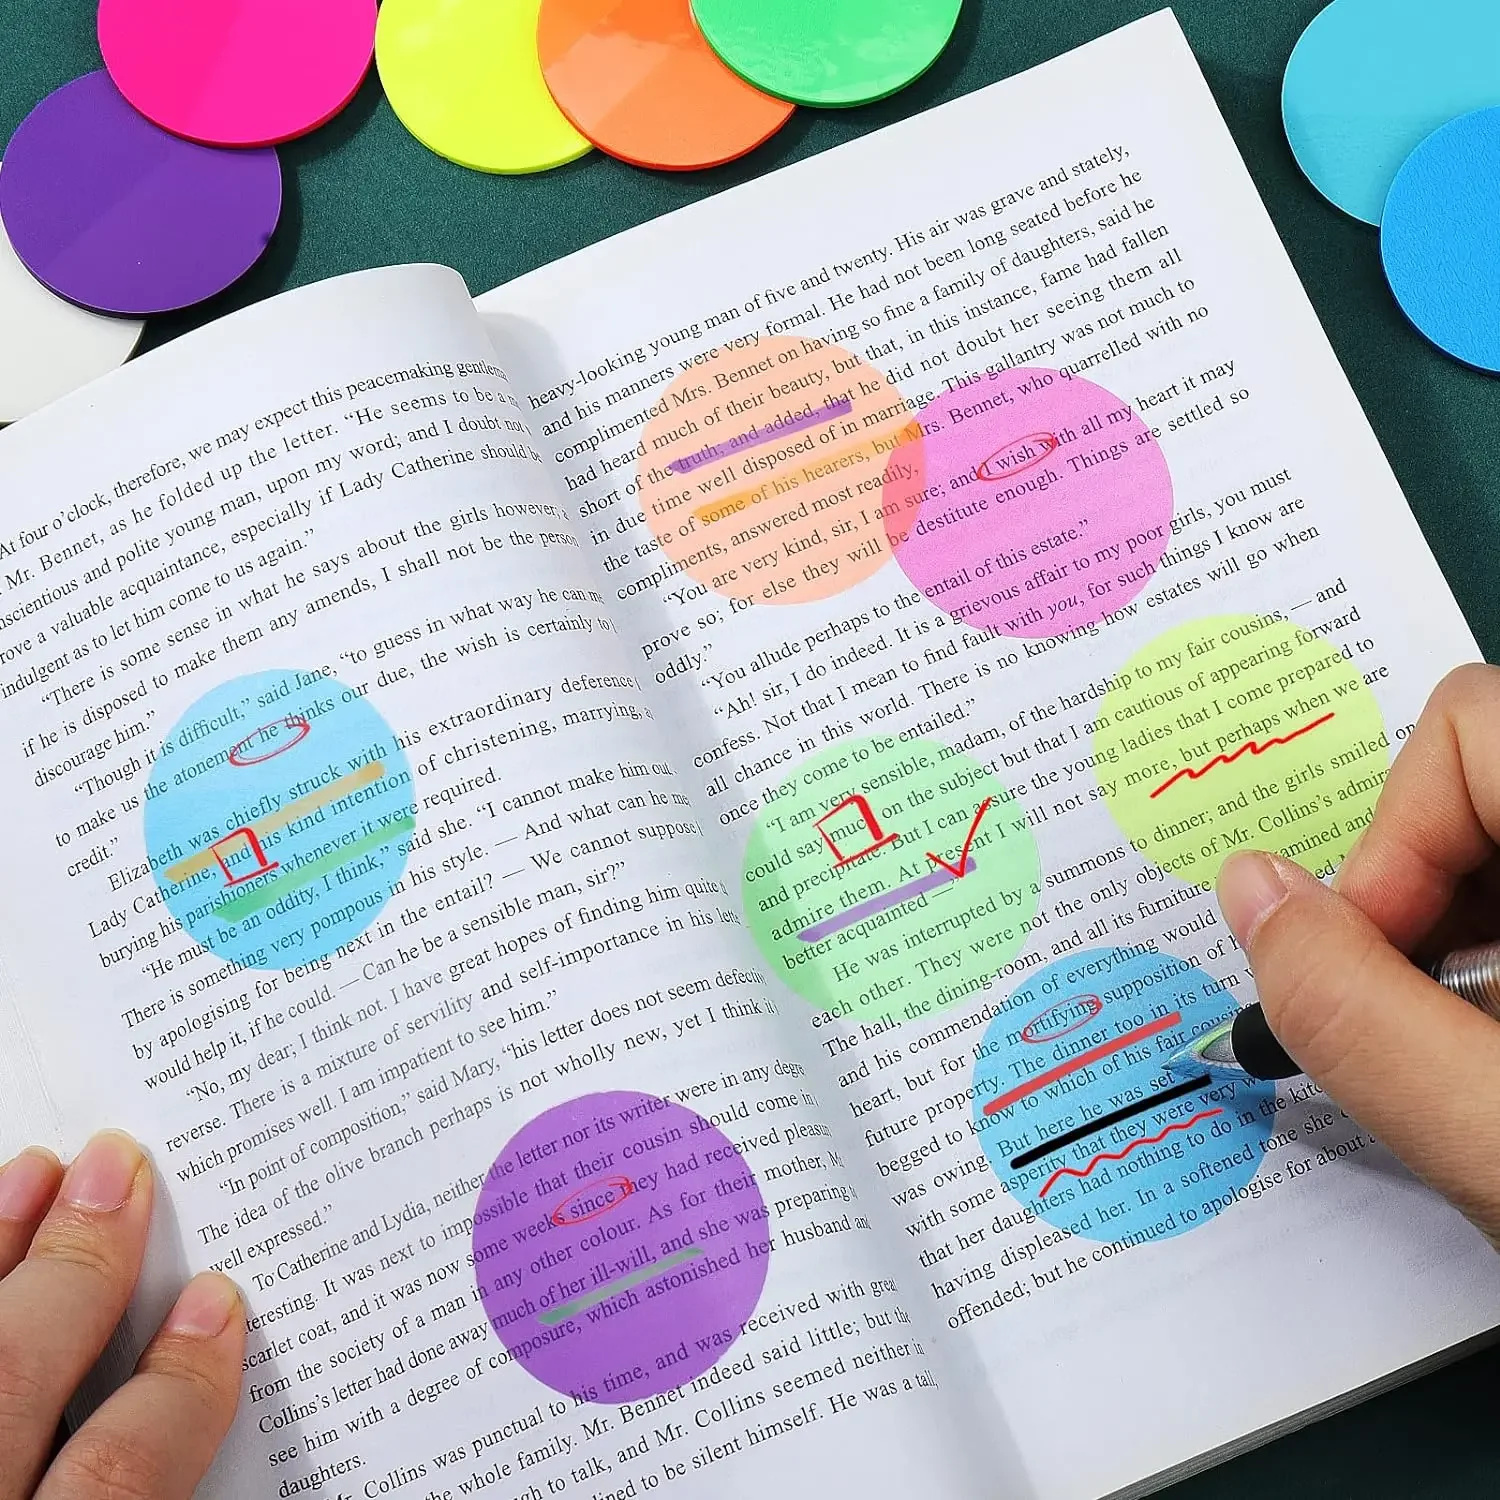 At four o'clock, therefore, we may expect this peacemaking
Mr. Bennet, as he folded up the letter. “He seems to be a
and polite young man, upon my word; and I doubt not
a valuable acquaintance, especially if Lady Catherine should be
indulgent as to let him come to us again.”
“There is some sense in what he says about the girls however,
if he is disposed to make them any amends, I shall not be the
discourage him.”
“Though it is difficult,” said Jane, “to guess in what way he can
to make us the atonement he thinks our due, the wish is certainly to
credit.”
Elizabeth was chiefly struck with his extraordinary deference
Lady Catherine, and his kind intention of christening, marrying,
burying his parishioners whenever it were required.
“He must be an oddity, I think,” said she. “I cannot make him out.
There is something very pompous in his style. — And what can he
by apologising for being next in the entail? — We cannot suppose
would help it, if he could. — Can he be a sensible man, sir?”
“No, my dear; I think not. I have great hopes of finding him quite
reverse. There is a mixture of servility and self-importance in his
which promises well. I am impatient to see him.”
“In point of composition,” said Mary, “his letter does not seem
The idea of the olive branch perhaps is not wholly new, yet I think it
well expressed.”
To Catherine and Lydia, neither the letter nor its writer were in any
It was next to impossible that their cousin should come in
scarlet coat, and it was now some weeks since they had received
from the society of a man in any other colour. As for their mother,
Collins's letter had done away much of her ill-will, and she was preparing
see him with a degree of composure, which astonished her husband
daughters.
Mr. Collins was punctual to his time, and was received with
the whole family. Mr. Bennet indeed said little; but the
to talk, and Mr. Collins seemed neither in
to be silent himself. He was a tall,
heavy-looking young man of five and twenty. His air was grave and stately,
and his manners were very formal. He had not been long seated before he
complimented Mrs. Bennet on having so fine a family of daughters, said he
had heard much of their beauty, but that, in this instance, fame had fallen
short of the truth; and added, that he did not doubt her seeing them all
in due time well disposed of in marriage. This gallantry was not much to
the taste of some of his hearers, but Mrs. Bennet, who quarrelled with no
compliments, answered most readily,
“You are very kind, sir, I am sure; and I wish with all my heart it may
prove so; for else they will be destitute enough. Things are settled so
oddly.”
“You allude perhaps to the entail of this estate.”
“Ah! sir, I do indeed. It is a grievous affair to my poor girls, you must
confess. Not that I mean to find fault with you, for such things I know are
all chance in this world. There is no knowing how estates will go when
once they come to be entailed.”
“I am very sensible, madam, of the hardship to my fair cousins, — and
could say much on the subject but that I am cautious of appearing forward
and precipitate. But I can assure the young ladies that I come prepared to
admire them. At present I will not say more, but perhaps when we are
better acquainted —”
He was interrupted by a summons to dinner; and the girls smiled on
each other. They were not the only objects of Mr. Collins's
The hall, the dining-room, and all its furniture examined and
and his commendation of everything would
heart, but for the mortifying supposition of
future property. The dinner too in its turn
begged to know to which of his fair
was owing. But here he was set
with some asperity that they were very
that her daughters had nothing to do in the
having displeased her. In a softened tone she
offended; but he continued to apologise for about